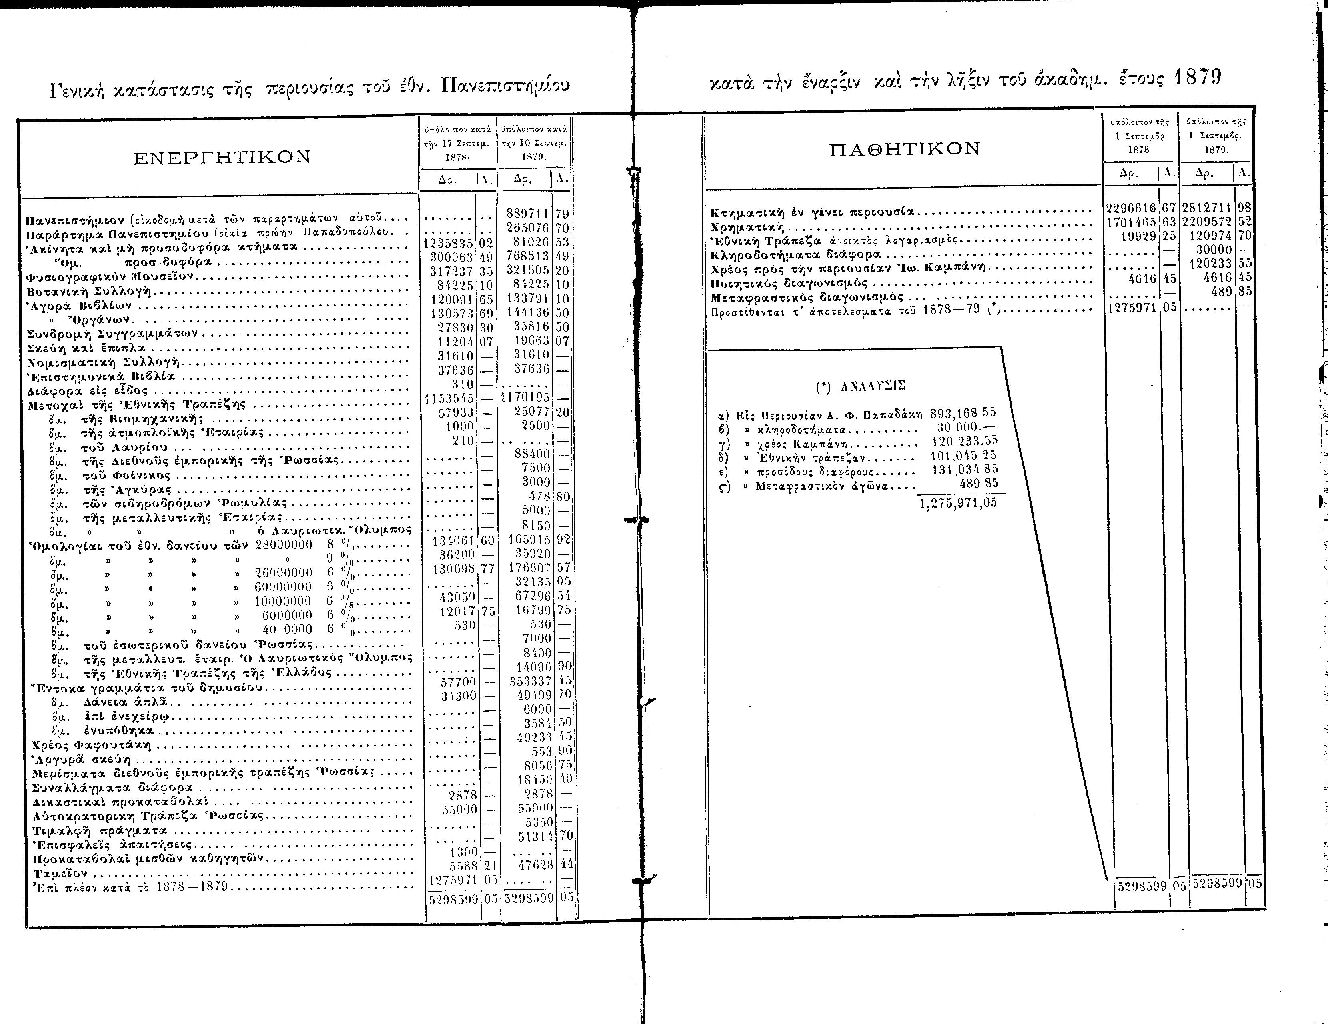 Γενικὴ κατάστασις τῆς περιουσίας τοῦ ἐθν. Πανεπιστημίου
ΕΝΕΡΓΗΤΙΚΟΝ
ὑπόλοιπον κατὰ τὴν 17 Σεπτεμ. 1878. ὑπόλοιπον κατὰ τὴν 10 Σεπτεμ. 1879.
Δρ. Λ. Δρ. Λ.
Πανεπιστήμιον (οἰκοδομὴ μετὰ τῶν παραρτημάτων αὐτοῦ.... 889711 79
Παράρτημα Πανεπιστημίου (οἰκία πρώην Παπαδοπούλου. . 265076 70
Ἀκίνητα καὶ μὴ προσοδοφόρα κτήματα 1235835 02 81026 53
Ὁμ. προσοδοφόρα 300063 49 768513 49
Φυσιογραφικὸν Μουσεῖον 317237 35 321505 20
Βοτανικὴ Συλλογὴ 84225 10 84225 10
Ἀγορὰ Βιβλίων 120091 65 133791 10
» Ὀργάνων 130573 69 144136 50
Συνδρομὴ Συγγραμμάτων 27830 30 35816 50
Σκεύη καὶ ἔπιπλα 11204 07 19663 07
Νομισματικὴ Συλλογὴ 31610 — 31610 —
Ἐπιστημονικὰ Βιβλία 37636 — 37636 —
Διάφορα εἰς εἶδος 310 —
Μετοχαὶ τῆς Ἐθνικῆς Τραπέζης 1153545 — 1170195 —
ὅμ. τῆς Βιομηχανικῆς 57933 — 25077 20
ὅμ. τῆς ἀτμοπλοϊκῆς Ἑταιρίας 1000 — 2500 —
ὅμ. τοῦ Λαυρίου 210 —
ὅμ. τῆς Διεθνοῦς ἐμπορικῆς τῆς Ῥωσσίας — 88400 —
ὅμ. τοῦ Φοίνικος — 7500 —
ὅμ. τῆς Ἀγκύρας — 3000 —
ὅμ. τῶν σιδηροδρόμων Ῥωμυλίας — 478 80
ὅμ. τῆς μεταλλευτικῆς Ἑταιρίας — 5000 —
ὅμ. » » ὁ Λαυριωτικ. Ὄλυμπος — 8150 —
Ὁμολογίαι τοῦ ἐθν. δανείου τῶν 28000000 8 % 134661 60 165915 92
ὅμ. » » » » 9 % 36200 — 35920 —
ὅμ. » » » 26000000 6 % 130698 77 176607 57
ὅμ. » » » 60000000 6 % 32135 05
ὅμ. » » » 10000000 6 % 43050 — 67296 51
ὅμ. » » » 6000000 6 % 12017 75 16799 75
ὅμ. » » » 40 0000 6 % 530 530 —
ὅμ. τοῦ ἐσωτερικοῦ δανείου Ῥωσσίας — 7000 —
ὅμ. τῆς μεταλλευτ. ἑταιρ. Ὁ Λαυριωτικὸς Ὄλυμπος — 8400 —
ὅμ. τῆς Ἐθνικῆς Τραπέζης τῆς Ἑλλάδος — 14096 90
Ἔντοκα γραμμάτια τοῦ δημοσίου 57700 — 353337 15
ὅμ. Δάνεια ἁπλᾶ 31300 — 49199 70
ὅμ. ἐπὶ ἐνεχείρῳ — 6000 —
ὅμ. ἐνυπόθηκα — 3584 50
Χρέος Φαφουτάκη — 49233 15
Ἀργυρᾶ σκεύη — 553 90
Μερίσματα διεθνοῦς ἐμπορικῆς τραπέζης Ῥωσσίας — 8056 75
Συναλλάγματα διάφορα — 18456 40
Δικαστικαὶ προκαταβολαὶ 2878 — 2878 —
Αὐτοκρατορικὴ Τράπεζα Ῥωσσίας 55000 — 55000 —
Τιμαλφῆ πράγματα 5350 —
Ἐπισφαλεῖς ἀπαιτήσεις — 51314 70
Προκαταβολαὶ μισθῶν καθηγητῶν 1300 —
Ταμεῖον 5588 21 47628 44
Ἐπὶ πλέον κατὰ τὸ 1878—1879 1275971 05 —
5298599 05 5298599 05
κατὰ τὴν ἔναρξιν καὶ τὴν λῆξιν τοῦ ἀκαδημ. ἔτους 1879
ΠΑΘΗΤΙΚΟΝ
ὑπόλοιπον τῆς 1 Σεπτεμβρ. 1878 ὑπόλοιπον τῆς 1 Σεπτεμβρ. 1879.
Δρ. Λ. Δρ. Λ.
Κτηματικὴ ἐν γένει περιουσία 2296616 67 2812711 98
Χρηματικὴ 1701465 63 2209572 52
Ἐθνικὴ Τράπεζα ἀνοικτὸς λογαριασμὸς 19929 25 120974 70
Κληροδοτήματα διάφορα — 30000
Χρέος πρὸς τὴν περιουσίαν Ἰω. Καμπάνη — 120233 55
Ποιητικὸς διαγωνισμὸς 4616 45 4616 45
Μεταφραστικὸς διαγωνισμὸς — 489 85
Προστίθενται τ' ἀποτελέσματα τοῦ 1878—79 (*) 1275971 05
(*) ΑΝΑΛΥΣΙΣ
α) Εἰς Περιουσίαν Α. Φ. Παπαδάκη 893,168 55
β) » κληροδοτήματα 30 000.—
γ) » χρέος Καμπάνη 120 233.55
δ) » Ἐθνικὴν τράπεζαν 101,045 25
ε) » προσόδους διαφόρους 131,034 85
ς) » Μεταφραστικὸν ἀγῶνα 489 85
1,275,971,05
5298599 05 5298599 05